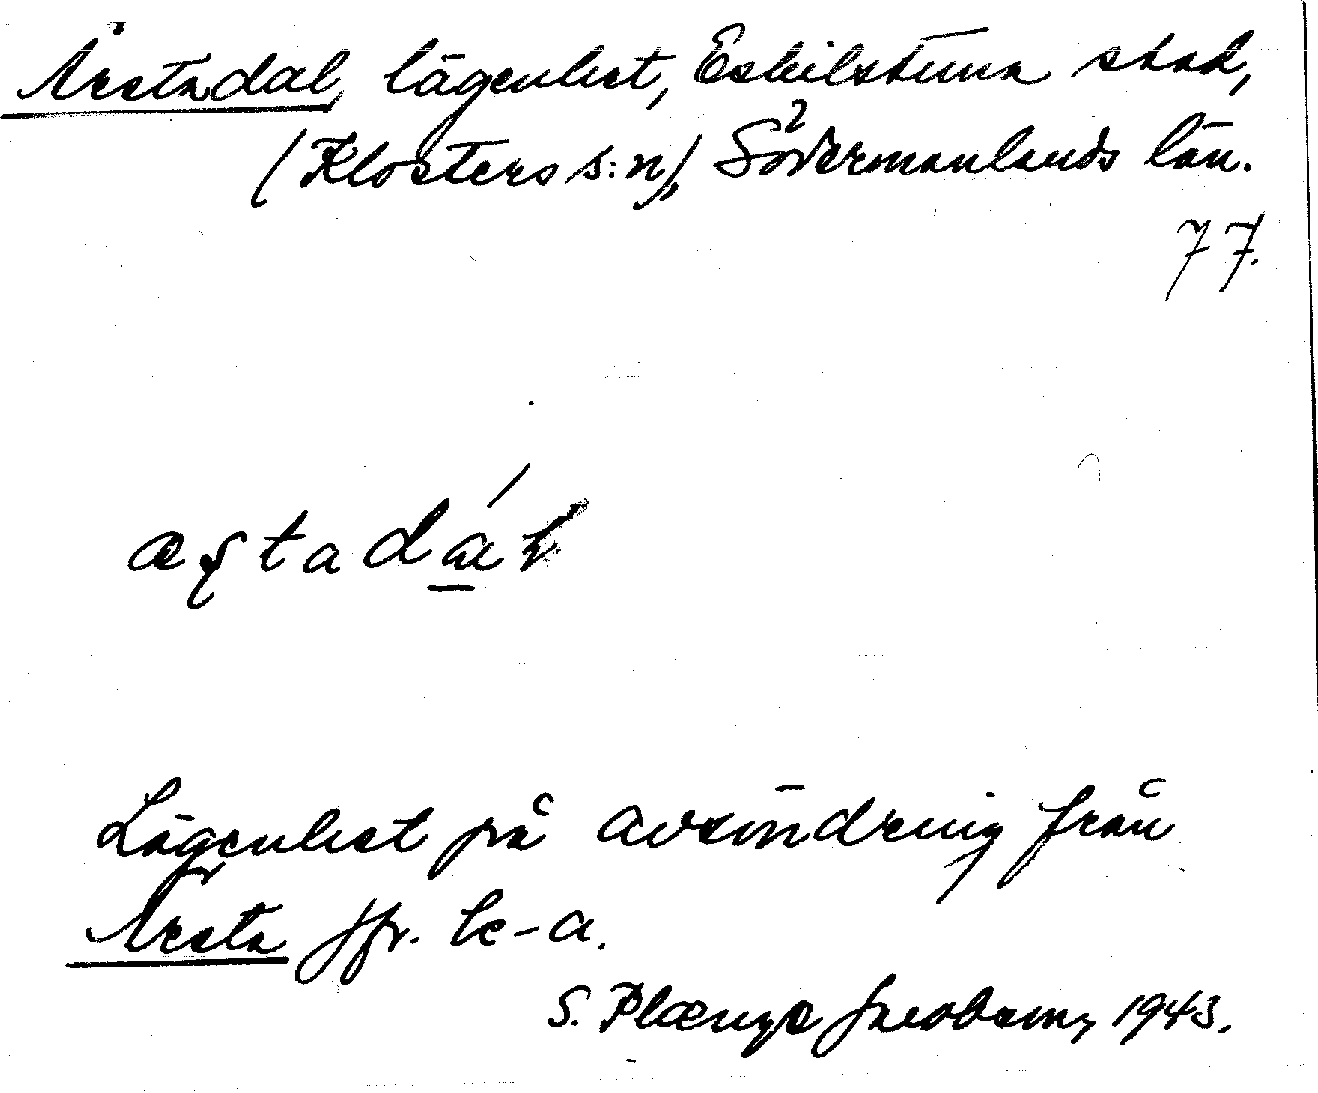 Ärstadal, lägenhet, Eskilstuna stad,
(Klosters s:n), Södermanlands län.
77.
æʂtadál
Lägenhet på avsöndring från
Ärsta jfr. be-a.
S. Plænge Jacobson, 1943.